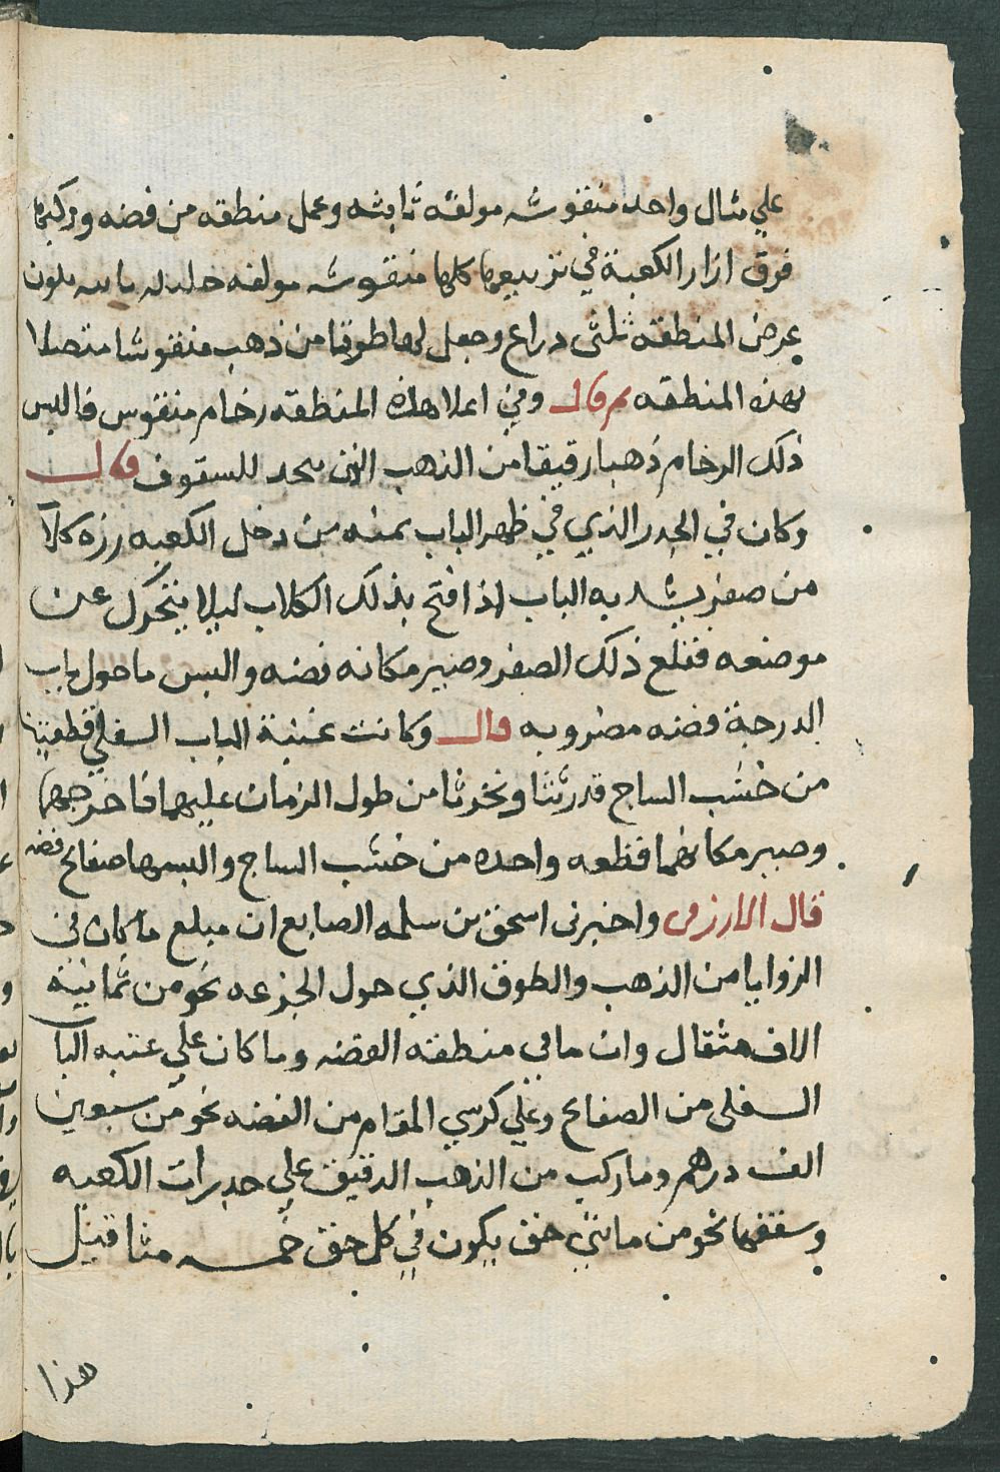 علي مثال واحد منقوشه مولفه ثابته وعمل منطقه من فضه وركبها
فوق ازار الكعبة في تربيعها كلها منقوشه مولفه يكون
عرض المنطقه ثلثى دراع وجعل لها طوقا من ذهب منقوشا متصلا
بهذه المنطقه ثم قال وفي اعلا هذه المنطقه رخام منقوس فالبس
ذلك الرخام ذهبا رقيقا من الذهب الذى يتخد للسقوف قال
وكان في الجدر الذي في ظهر الباب يمنه من دخل الكعبه رزه كلاب
من صفر يشد به الباب اذا فتح بذلك الكلاب ليلا يتحرك عن
موضعه فقلع ذلك الصفر وصير مكانه فضه والبس ما حول باب
الدرجة فضه مضروبه قال وكانت عتبة الباب السفلي قطعتين
من خشب الساج قد رثتا ونخرتا من طول الزمان عليهما فاخرجهما
وصير مكانهما قطعه واحده من خشب الساج والبسها صفائح فضه
قال الازرقى واخبرنى اسحق بن سلمه الصايع ان مبلع ما كان في
الزوايا من الذهب والطوق الذي حول الجزعه نحو من ثمانية
الاف مثقال وان ما في منطقه الفضه وما كان علي عتبه البا
السفلى من الصفائح وعلي كرسي المقام من الفضه نحو من سبعين
الف درهم وما ركب من الذهب الدقيق علي جدرات الكعبه
وسقفها نحو من مائتي حق يكون في كل حق خمسه مثاقيل
هذا